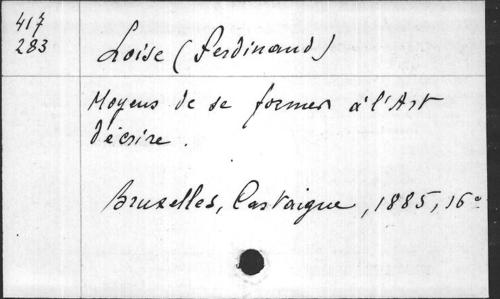 417
283
Loise (Ferdinand)
Moyens de se former à l'Art
d'écrire.
Bruxelles, Castaigne, 1885, 16°